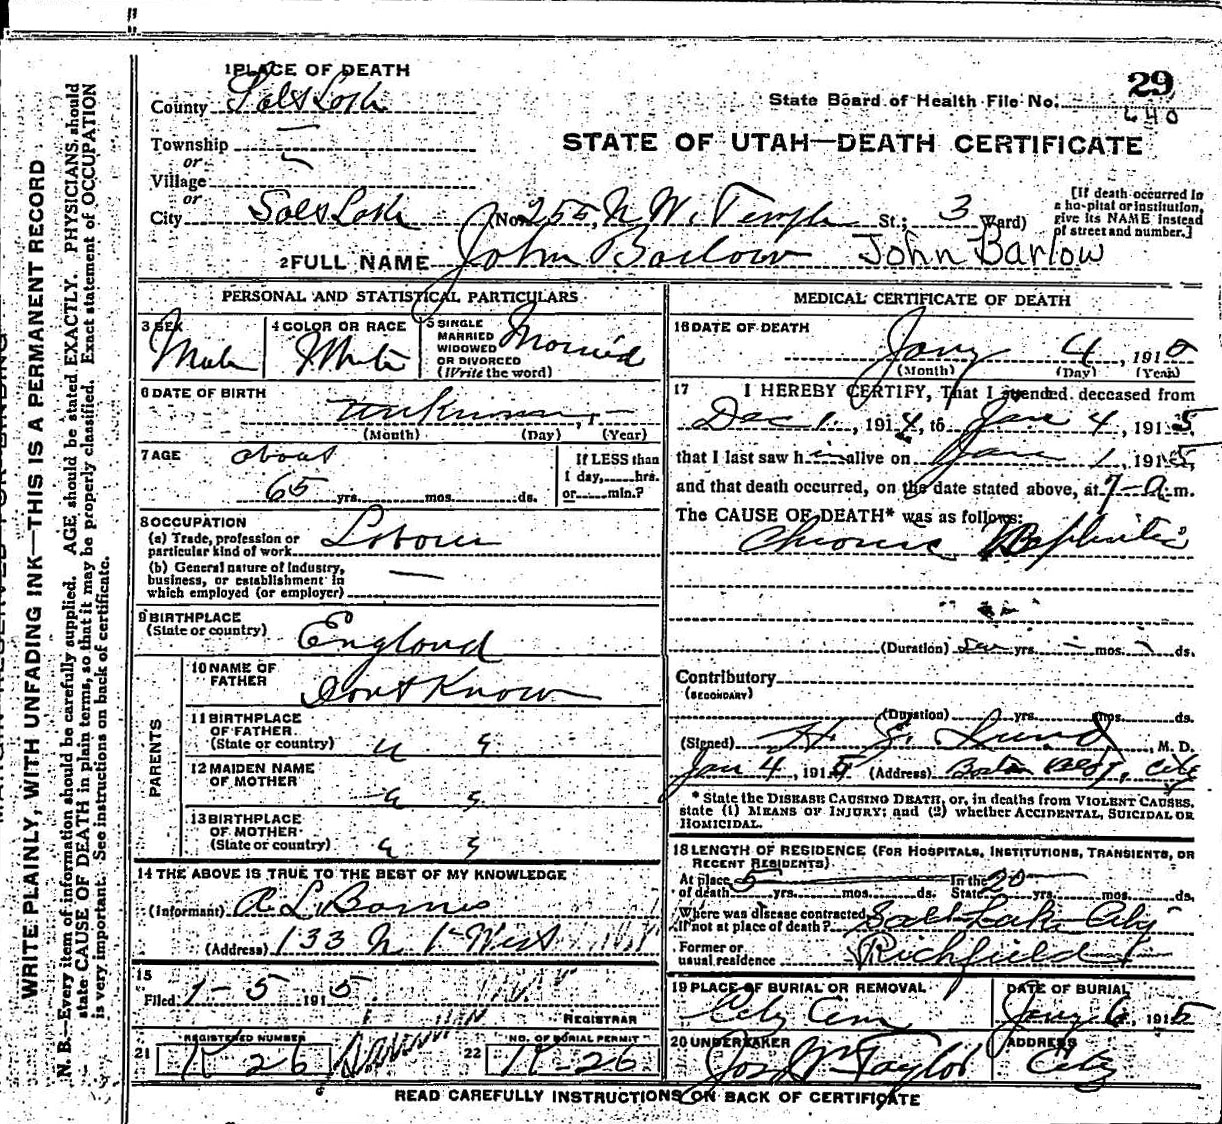 1 PLACE OF DEATH
County Salt Lake
Township —
or
Village —
or
City Salt Lake (No. 255 N W. Temple St.; 3 Ward)
29
State Board of Health File No.
640
STATE OF UTAH—DEATH CERTIFICATE
[If death occurred in
a hospital or institution,
give its NAME instead
of street and number.]
2 FULL NAME John Barlow John Barlow
PERSONAL AND STATISTICAL PARTICULARS
3 SEX
Male
4 COLOR OR RACE
White
5 SINGLE
MARRIED
WIDOWED
OR DIVORCED
(Write the word)
Married
6 DATE OF BIRTH
unknown, —
(Month) (Day) (Year)
7 AGE about
65 yrs. mos. ds.
If LESS than
1 day, hrs.
or min.?
8 OCCUPATION
(a) Trade, profession or
particular kind of work Laborer
(b) General nature of industry,
business, or establishment in
which employed (or employer) —
9 BIRTHPLACE
(State or country) England
PARENTS
10 NAME OF
FATHER Dont Know
11 BIRTHPLACE
OF FATHER
(State or country) " "
12 MAIDEN NAME
OF MOTHER " "
13 BIRTHPLACE
OF MOTHER
(State or country) " "
14 THE ABOVE IS TRUE TO THE BEST OF MY KNOWLEDGE
(Informant) A L Barnes
(Address) 133 N 1st West
15
Filed 1-5 1915
REGISTRAR
21 REGISTERED NUMBER
K-26
22 NO. OF BURIAL PERMIT
K-26
MEDICAL CERTIFICATE OF DEATH
16 DATE OF DEATH
Jany 4, 191
(Month) (Day) (Year)
17 I HEREBY CERTIFY, That I attended deceased from
Dec 1, 1914, to Jan 4, 1915,
that I last saw him alive on Jan 1, 1915,
and that death occurred, on the date stated above, at 7-a.m.
The CAUSE OF DEATH* was as follows:
Chronic Nephritis
(Duration) yrs. — mos. ds.
Contributory
(SECONDARY)
(Duration) yrs. mos. ds.
(Signed) H. Z. Lund, M. D.
Jan 4, 1915 (Address) Boston Bldg, City
* State the DISEASE CAUSING DEATH, or, in deaths from VIOLENT CAUSES,
state (1) MEANS OF INJURY; and (2) whether ACCIDENTAL, SUICIDAL OR
HOMICIDAL.
18 LENGTH OF RESIDENCE (FOR HOSPITALS, INSTITUTIONS, TRANSIENTS, OR
RECENT RESIDENTS)
At place of death 5 yrs. mos. ds. In the State 20 yrs. mos. ds.
Where was disease contracted
if not at place of death? Salt Lake City
Former or
usual residence Richfield
19 PLACE OF BURIAL OR REMOVAL
City Cem
DATE OF BURIAL
Jany 6, 1915
20 UNDERTAKER
Jos Wm Taylor
ADDRESS
City
READ CAREFULLY INSTRUCTIONS ON BACK OF CERTIFICATE
WRITE PLAINLY, WITH UNFADING INK—THIS IS A PERMANENT RECORD
N. B.—Every item of information should be carefully supplied. AGE should be stated EXACTLY. PHYSICIANS should
state CAUSE OF DEATH in plain terms, so that it may be properly classified. Exact statement of OCCUPATION
is very important. See instructions on back of certificate.